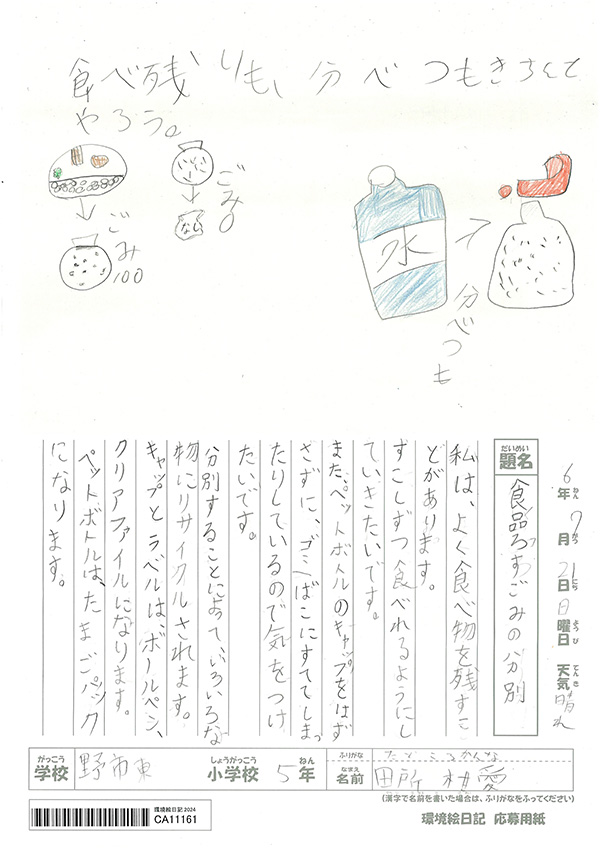 食べ残しも、分べつもきちんと
やろう。
ごみ
100
ごみ0
ない
水
分べつも
6年7月21日日曜日 天気晴れ
ねん
がつ
にち
ようび
てんき
だいめい
題名
食品ろすごみの分別
私は、よく食べ物を残すこ
とがあります。
すこしずつ食べれるようにし
ていきたいです。
また、ペットボトルのキャップをはず
さずに、ゴミばこにすててしまっ
たりしているので気をつけ
たいです。
分別することによって、いろいろな
物にリサイクルされます。
キャップとラベルは、ボールペン、
クリアファイルになります。
ペットボトルは、たまごパック
になります。
がっこう
学校
野市東
しょうがっこう
小学校
5年
ねん
ふりがな
たどころかんな
なまえ
名前
田所 柑愛
(漢字で名前を書いた場合は、ふりがなをふってください)
環境絵日記2024
CA11161
環境絵日記 応募用紙